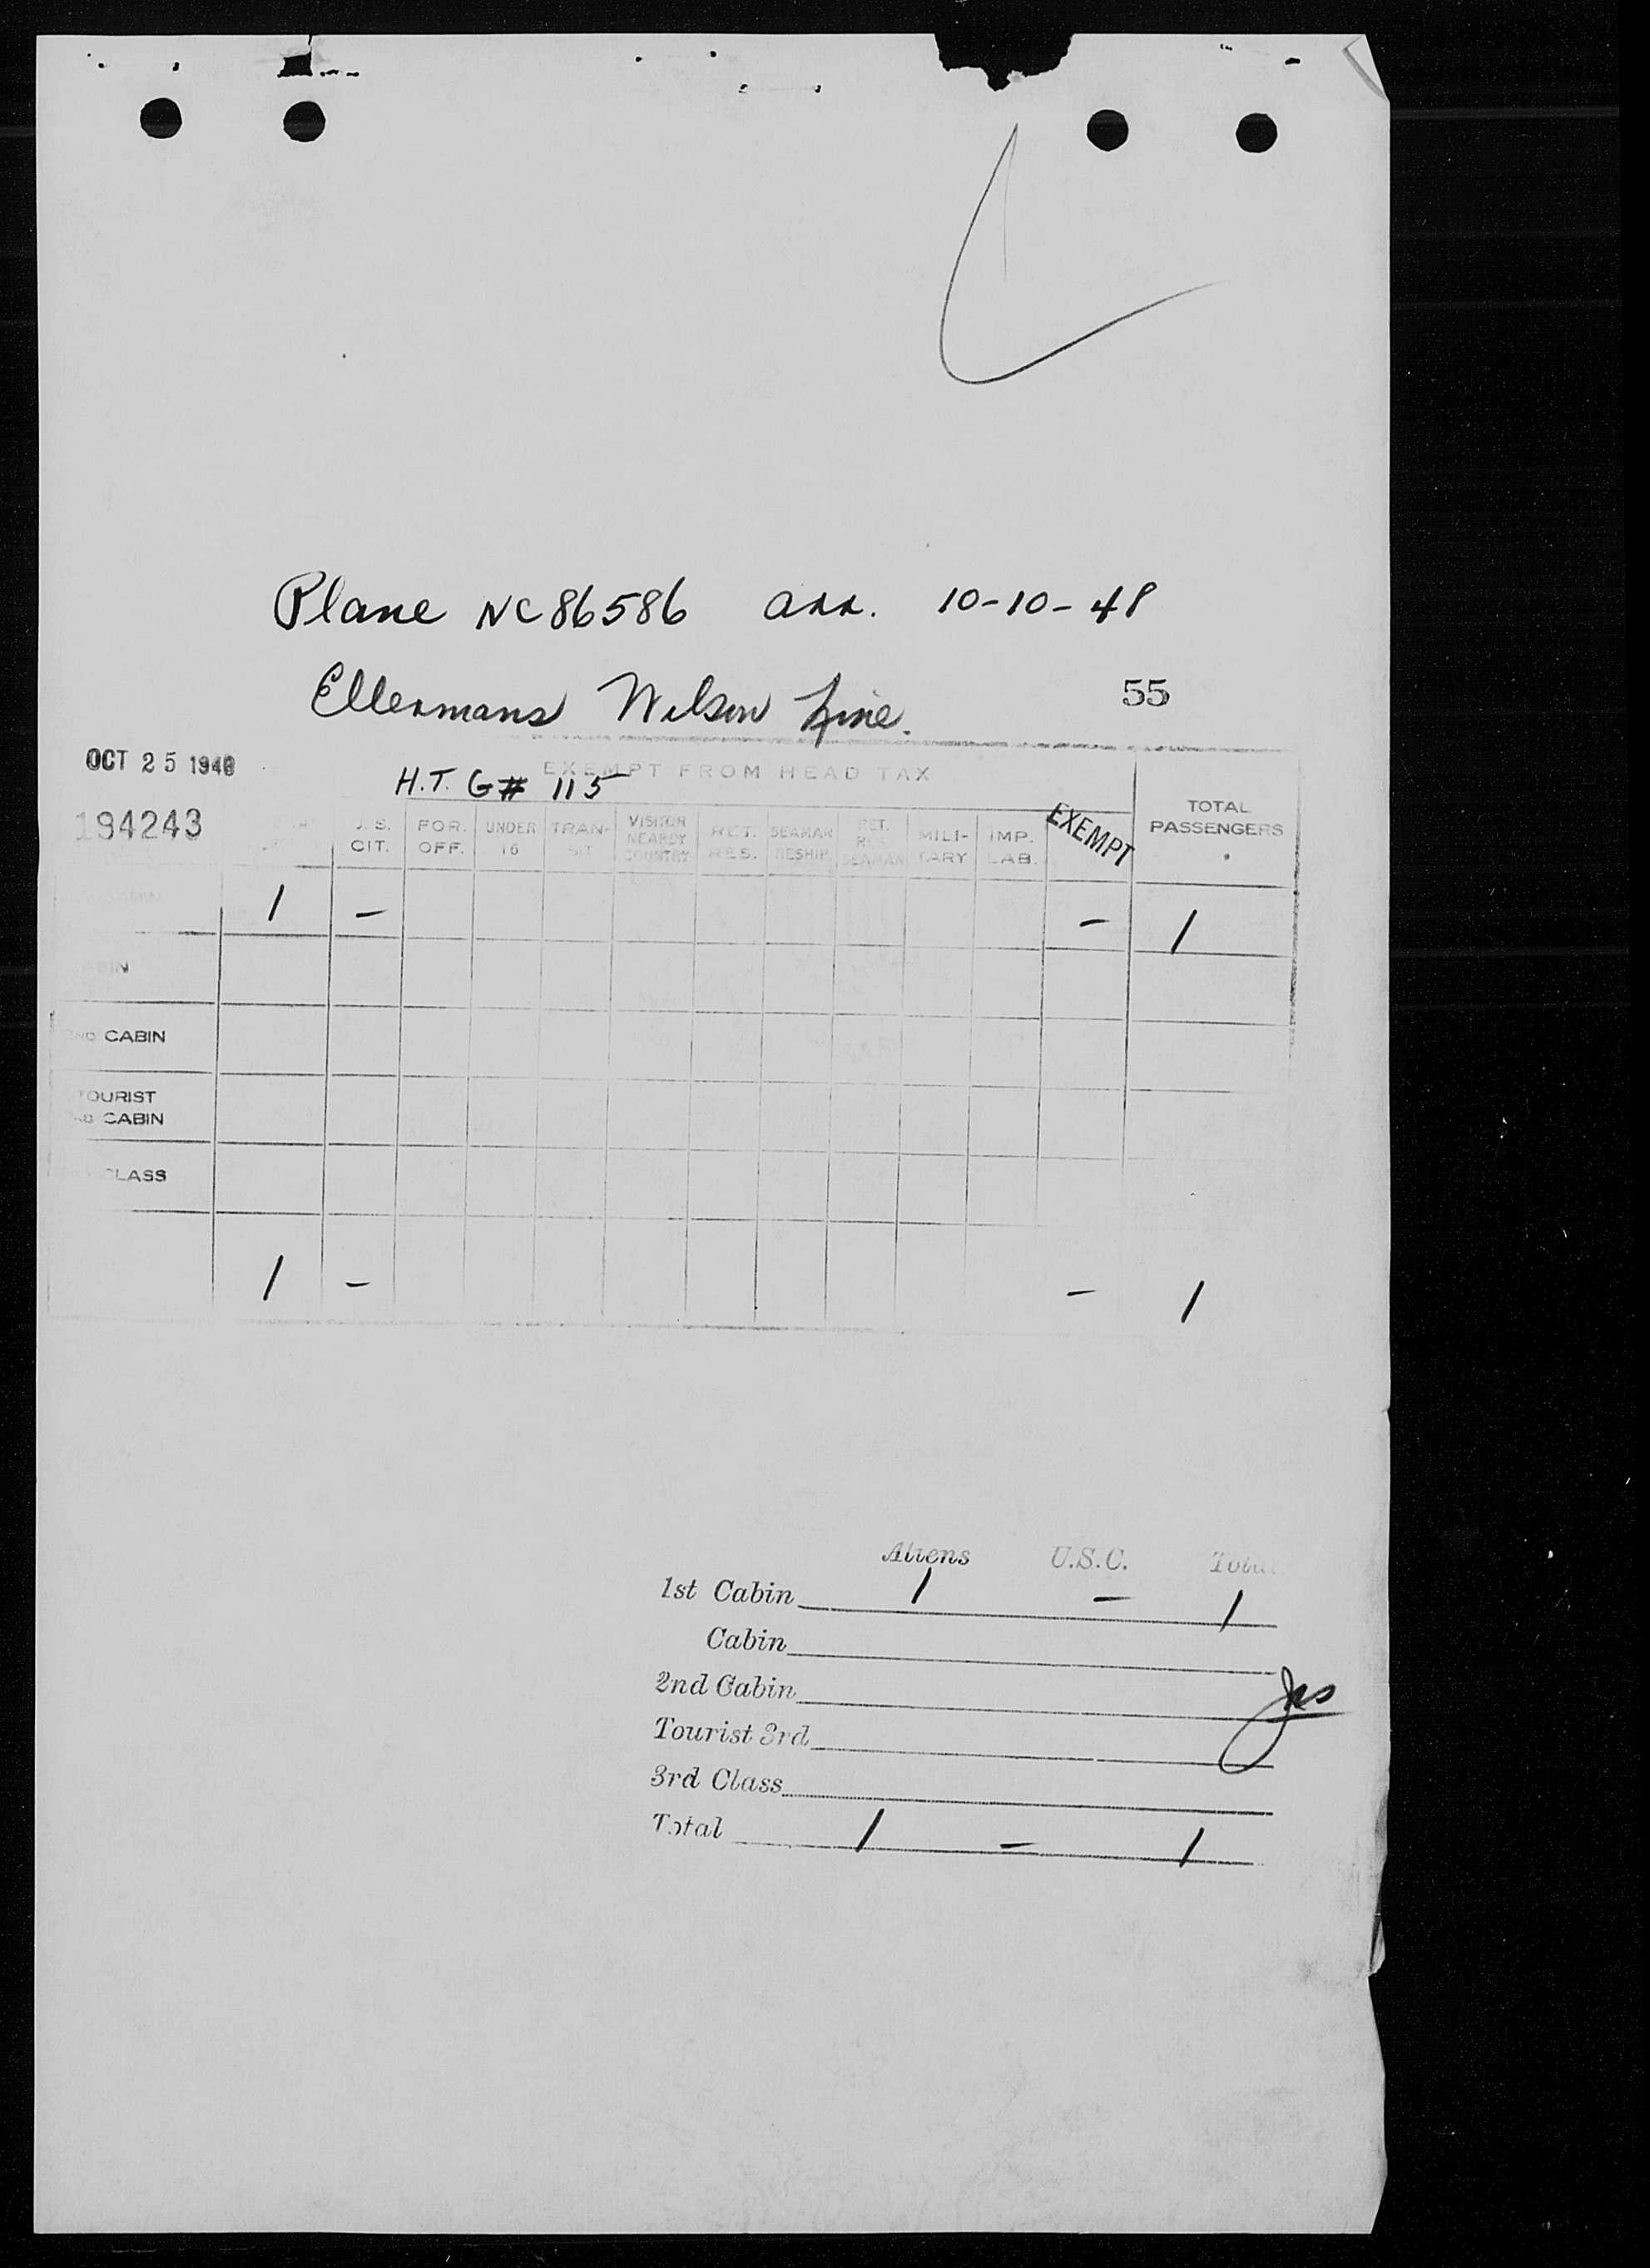 Plane NC86586 arr. 10-10-48
Ellermans Wilson Line.
55
OCT 25 1948
H.T. G# 115
EXEMPT FROM HEAD TAX
194243
U.S. CIT.
FOR. OFF.
UNDER 16
TRAN- SIT
VISITOR NEARBY COUNTRY
RET. RES.
SEAMAN RESHIP.
RET. RES. SEAMAN
MILI- TARY
IMP. LAB.
EXEMPT
TOTAL PASSENGERS
CABIN 1 - - 1
CABIN
2ND CABIN
TOURIST
CABIN
CLASS
1 - - 1
Aliens U.S.C. Total
1st Cabin 1 - 1
Cabin
2nd Cabin
Tourist 3rd
3rd Class
Total 1 - 1